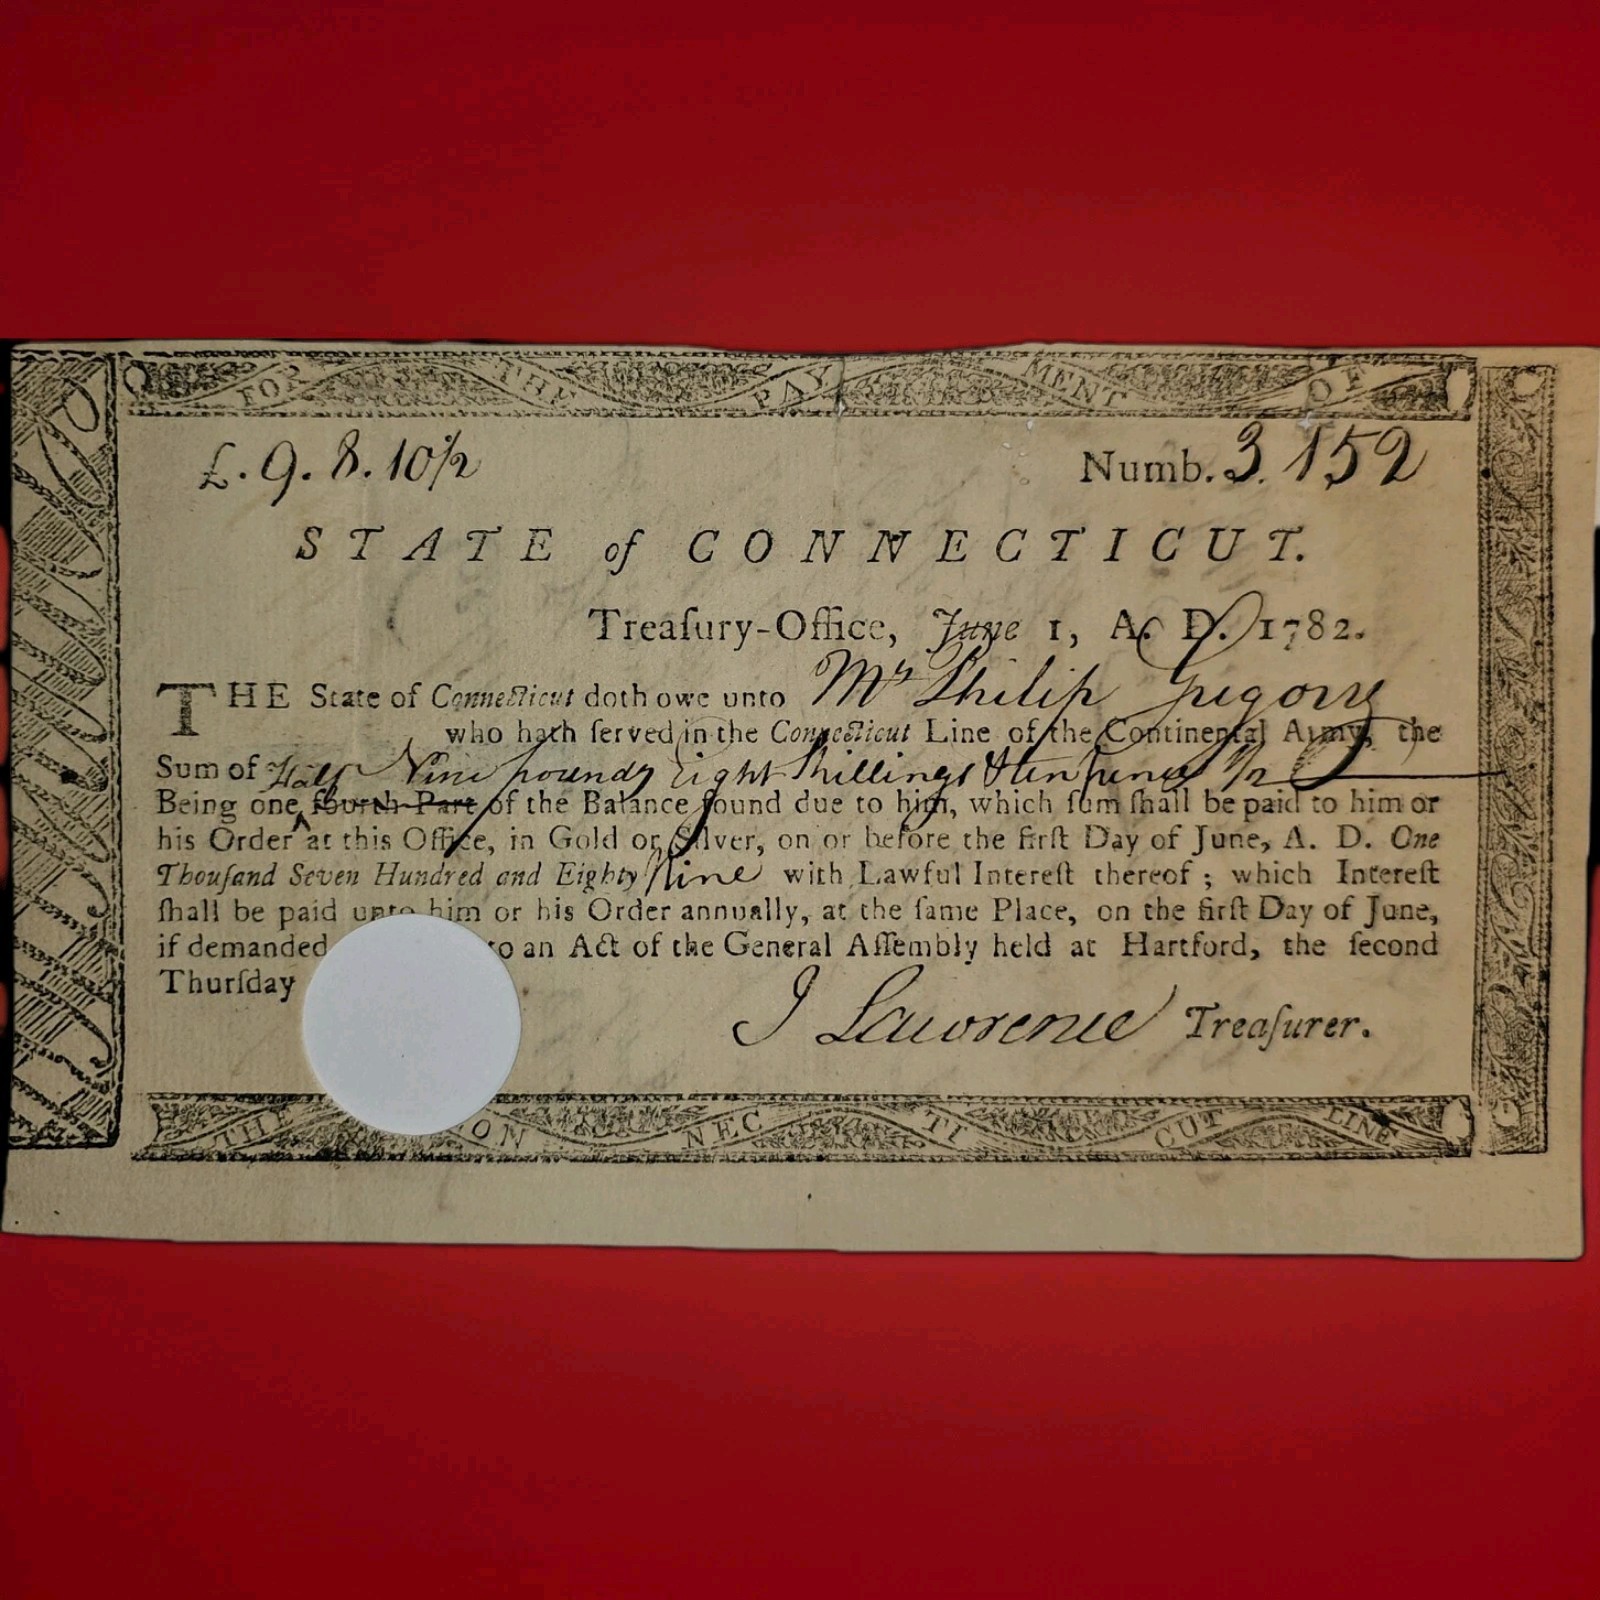 FOR THE PAY MENT OF
£. 9. 8. 10½ Numb. 3.152
STATE of CONNECTICUT.
Treaſury-Office, June 1, A. D. 1782.
THE State of Connecticut doth owe unto Mr Philip Gregory
who hath ſerved in the Connecticut Line of the Continental Army, the
Sum of Nine pounds Eight Shillings & ten pence 1/2
Half
Being one fourth Part of the Balance found due to him, which ſum ſhall be paid to him or
his Order at this Office, in Gold or Silver, on or before the firſt Day of June, A. D. One
Thouſand Seven Hundred and Eighty Nine with Lawful Intereſt thereof; which Intereſt
ſhall be paid unto him or his Order annually, at the ſame Place, on the firſt Day of June,
if demanded to an Act of the General Aſſembly held at Hartford, the ſecond
Thurſday
J Lawrence Treaſurer.
THE ON NEC TI CUT LINE